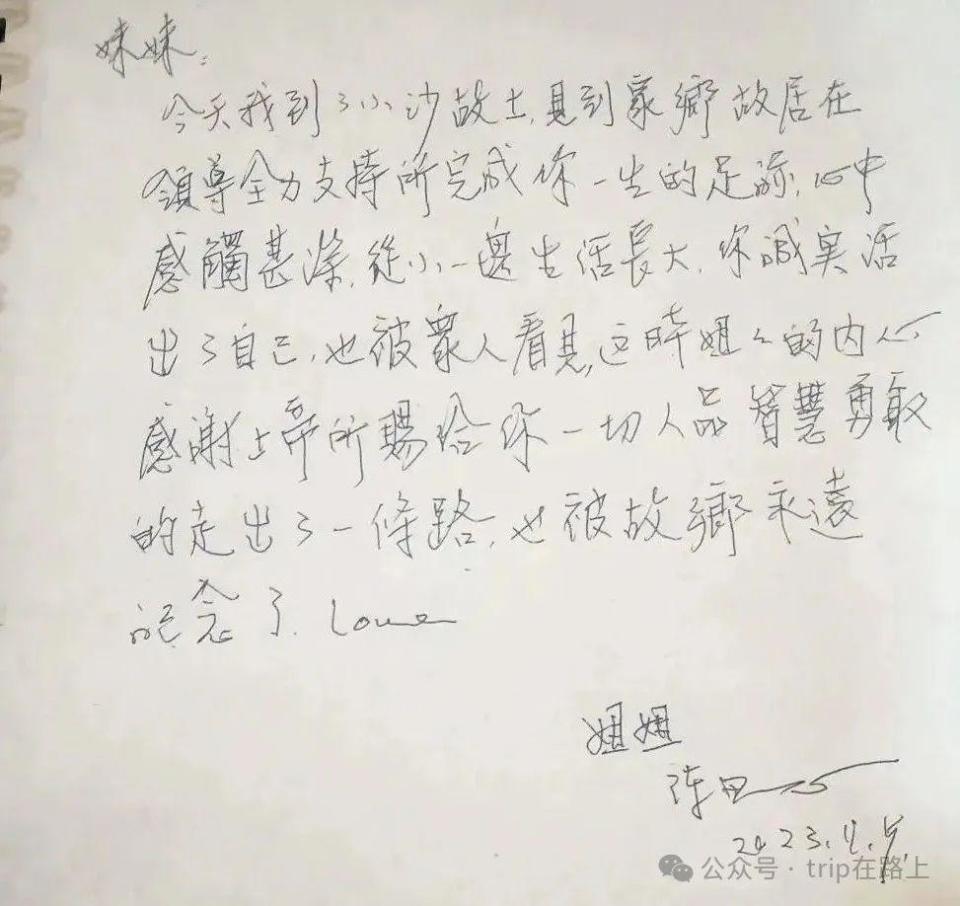 妹妹:
今天我到了小沙故土,見到家鄉故居在
領導全力支持所完成你一生的足跡,心中
感觸甚深,從小一邊生活長大,你誠实活
出了自己,也被眾人看見,这時姐々的内心
感謝上帝所賜給你一切人品智慧勇敢
的走出了一條路,也被故鄉永遠
記念了. Love
姐姐
陳田心
2023.
公众号·trip在路上